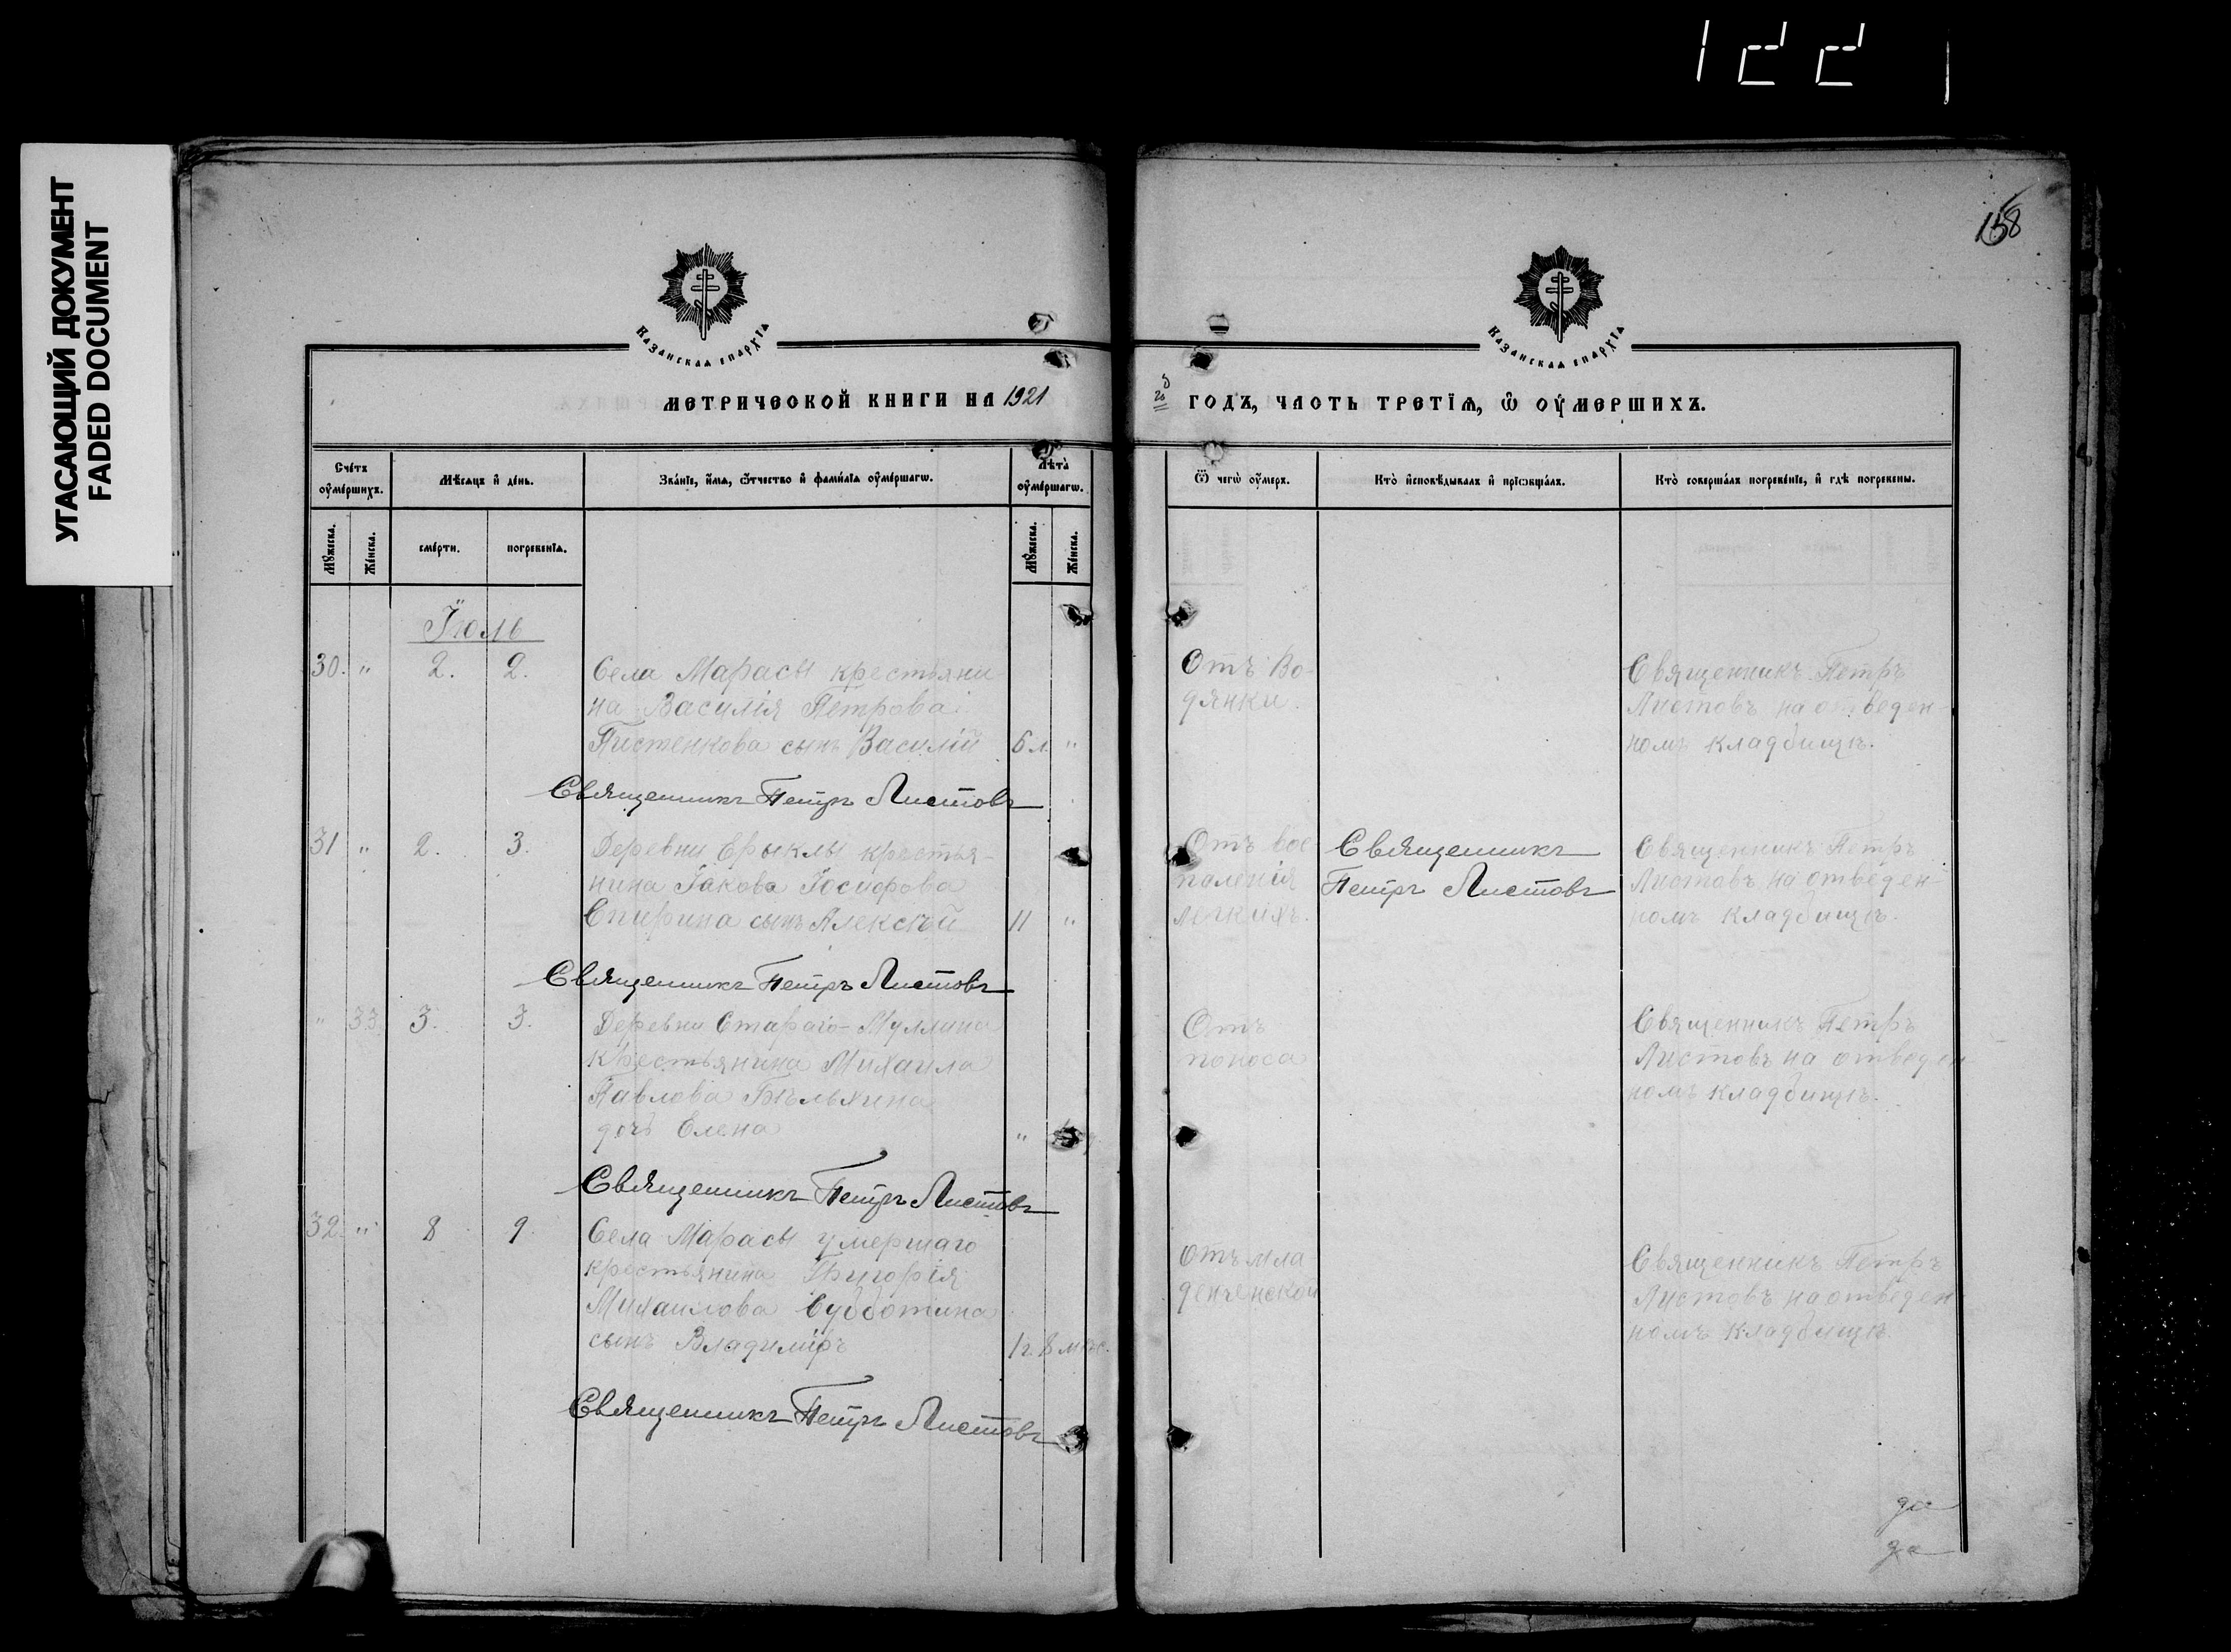 1221
УГАСАЮЩИЙ ДОКУМЕНТ
FADED DOCUMENT
158
Казанская епархїѧ
Казанская епархїѧ
МЕТРИЧЕСКОЙ КНИГИ НА 1921
го ГОДЪ, ЧАСТЬ ТРЕТІѦ, Ѿ ОУМЕРШИХЪ.
Счетъ оумершихъ.
Мѣсяцъ и день.
Званіе, имя, отчество и фамилія оумершагѡ.
Лѣта оумершагѡ.
Ѿ чегѡ оумеръ.
Кто исповѣдывалъ и пріобщалъ.
Кто совершалъ погребеніе, и гдѣ погребены.
Мужеска.
Женска.
смерти.
погребенія.
Мужеска.
Женска.
Іюль
30. " 2. 2. Села Марасы крестьяни-
на Василія Петрова
Пистенкова сынъ Василій 6 л. "
Отъ во-
дянки.
Священникъ Петръ
Листовъ на отведен-
номъ кладбищѣ.
Священникъ Петръ Листовъ
31 " 2. 3. Деревни Ерыклы крестья-
нина Іакова Іосифова
Спирина сынъ Алексѣй 11 "
Отъ вос
паленія
легкихъ.
Священникъ
Петръ Листовъ
Священникъ Петръ
Листовъ на отведен-
номъ кладбищѣ.
Священникъ Петръ Листовъ
" 33. 3. 3. Деревни Стараго-Муллина
крестьянина Михаила
Павлова Бѣльхина
дочь Елена "
Отъ
поноса
Священникъ Петръ
Листовъ на отведен
номъ кладбищѣ.
Священникъ Петръ Листовъ
32. " 8 9. Села Марасы умершаго
крестьянина Григорія
Михаилова Субботина
сынъ Владиміръ 1 г. 8 мѣс.
Отъ мла
денческой
Священникъ Петръ
Листовъ на отведен
номъ кладбищѣ
Священникъ Петръ Листовъ
да
да